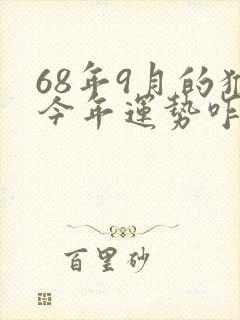 68年9月的猴
今年運勢咋
百里砂